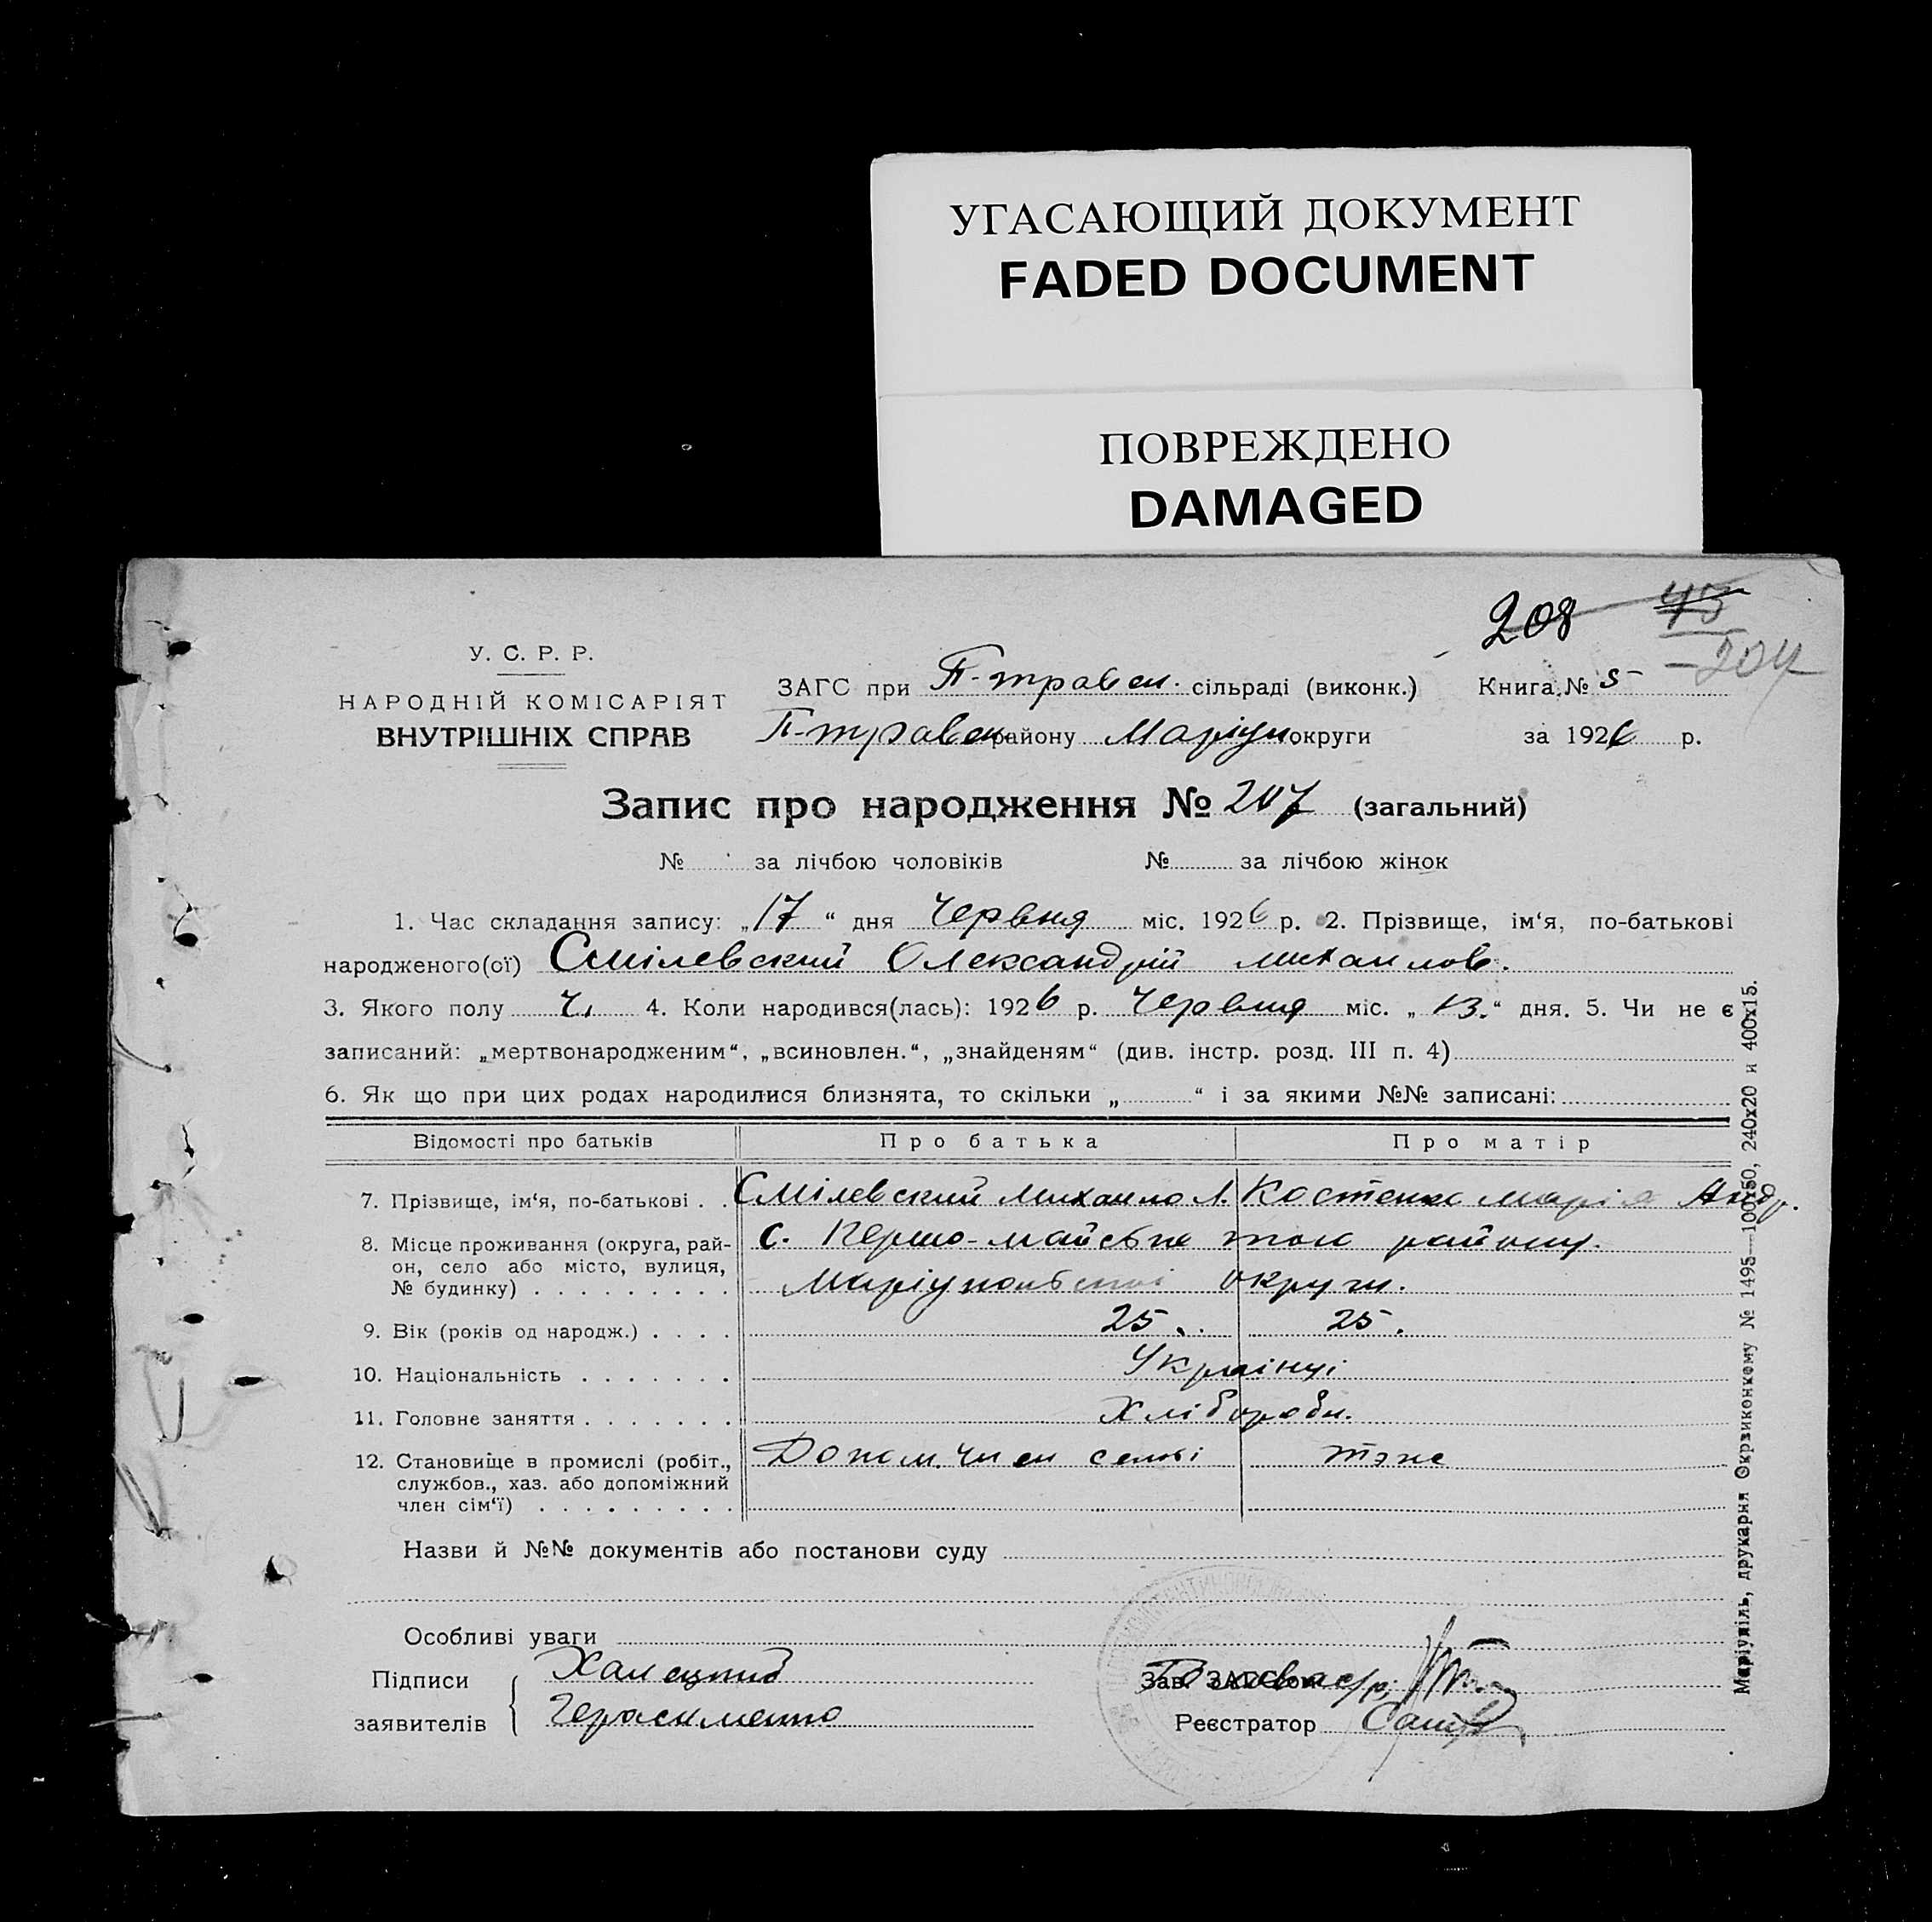 УГАСАЮЩИЙ ДОКУМЕНТ
FADED DOCUMENT
ПОВРЕЖДЕНО
DAMAGED
208 45
204
У. С. Р. Р.
НАРОДНІЙ КОМІСАРІЯТ
ВНУТРІШНІХ СПРАВ
ЗАГС при П-травен. сільраді (виконк.) Книга № 5
П-травен. району Маріуп. округи за 1926 р.
Запис про народження № 207 (загальний)
№ за лічбою чоловіків № за лічбою жінок
1. Час складання запису: „17“ дня Червня міс. 1926 р. 2. Прізвище, ім‘я, по-батькові
народженого(ої) Смілевский Олександрій михайлов.
3. Якого полу Ч. 4. Коли народився(лась): 1926 р. Червня міс. „13.“ дня. 5. Чи не є
записаний: „мертвонародженим“, „всиновлен.“, „знайденям“ (див. інстр. розд. III п. 4)
6. Як що при цих родах народилися близнята, то скільки „ “ і за якими №№ записані:
Відомості про батьків Про батька Про матір
7. Прізвище, ім‘я, по-батькові . . Смілевский Михайло Л. Костенко Марія Андр.
8. Місце проживання (округа, рай- с. Першо-майське того району.
он, село або місто, вулиця,
№ будинку) . . . . . . . . . Маріупольскої округи.
9. Вік (років од народж.) . . . . 25. 25.
10. Національність . . . . . . . Українці
11. Головне заняття . . . . . . . Хлібороби.
12. Становище в промислі (робіт., Допом. член семьі тэже
службов., хаз. або допоміжний
член сім‘ї) . . . . . . . . .
Назви й №№ документів або постанови суду
Особливі уваги
Підписи Халецкий Зав. ЗАГС'ом
заявителів Герасименко Реєстратор
Маріупіль, друкарня Окрвиконкому № 1495—100х50, 240х20 и 400х15.